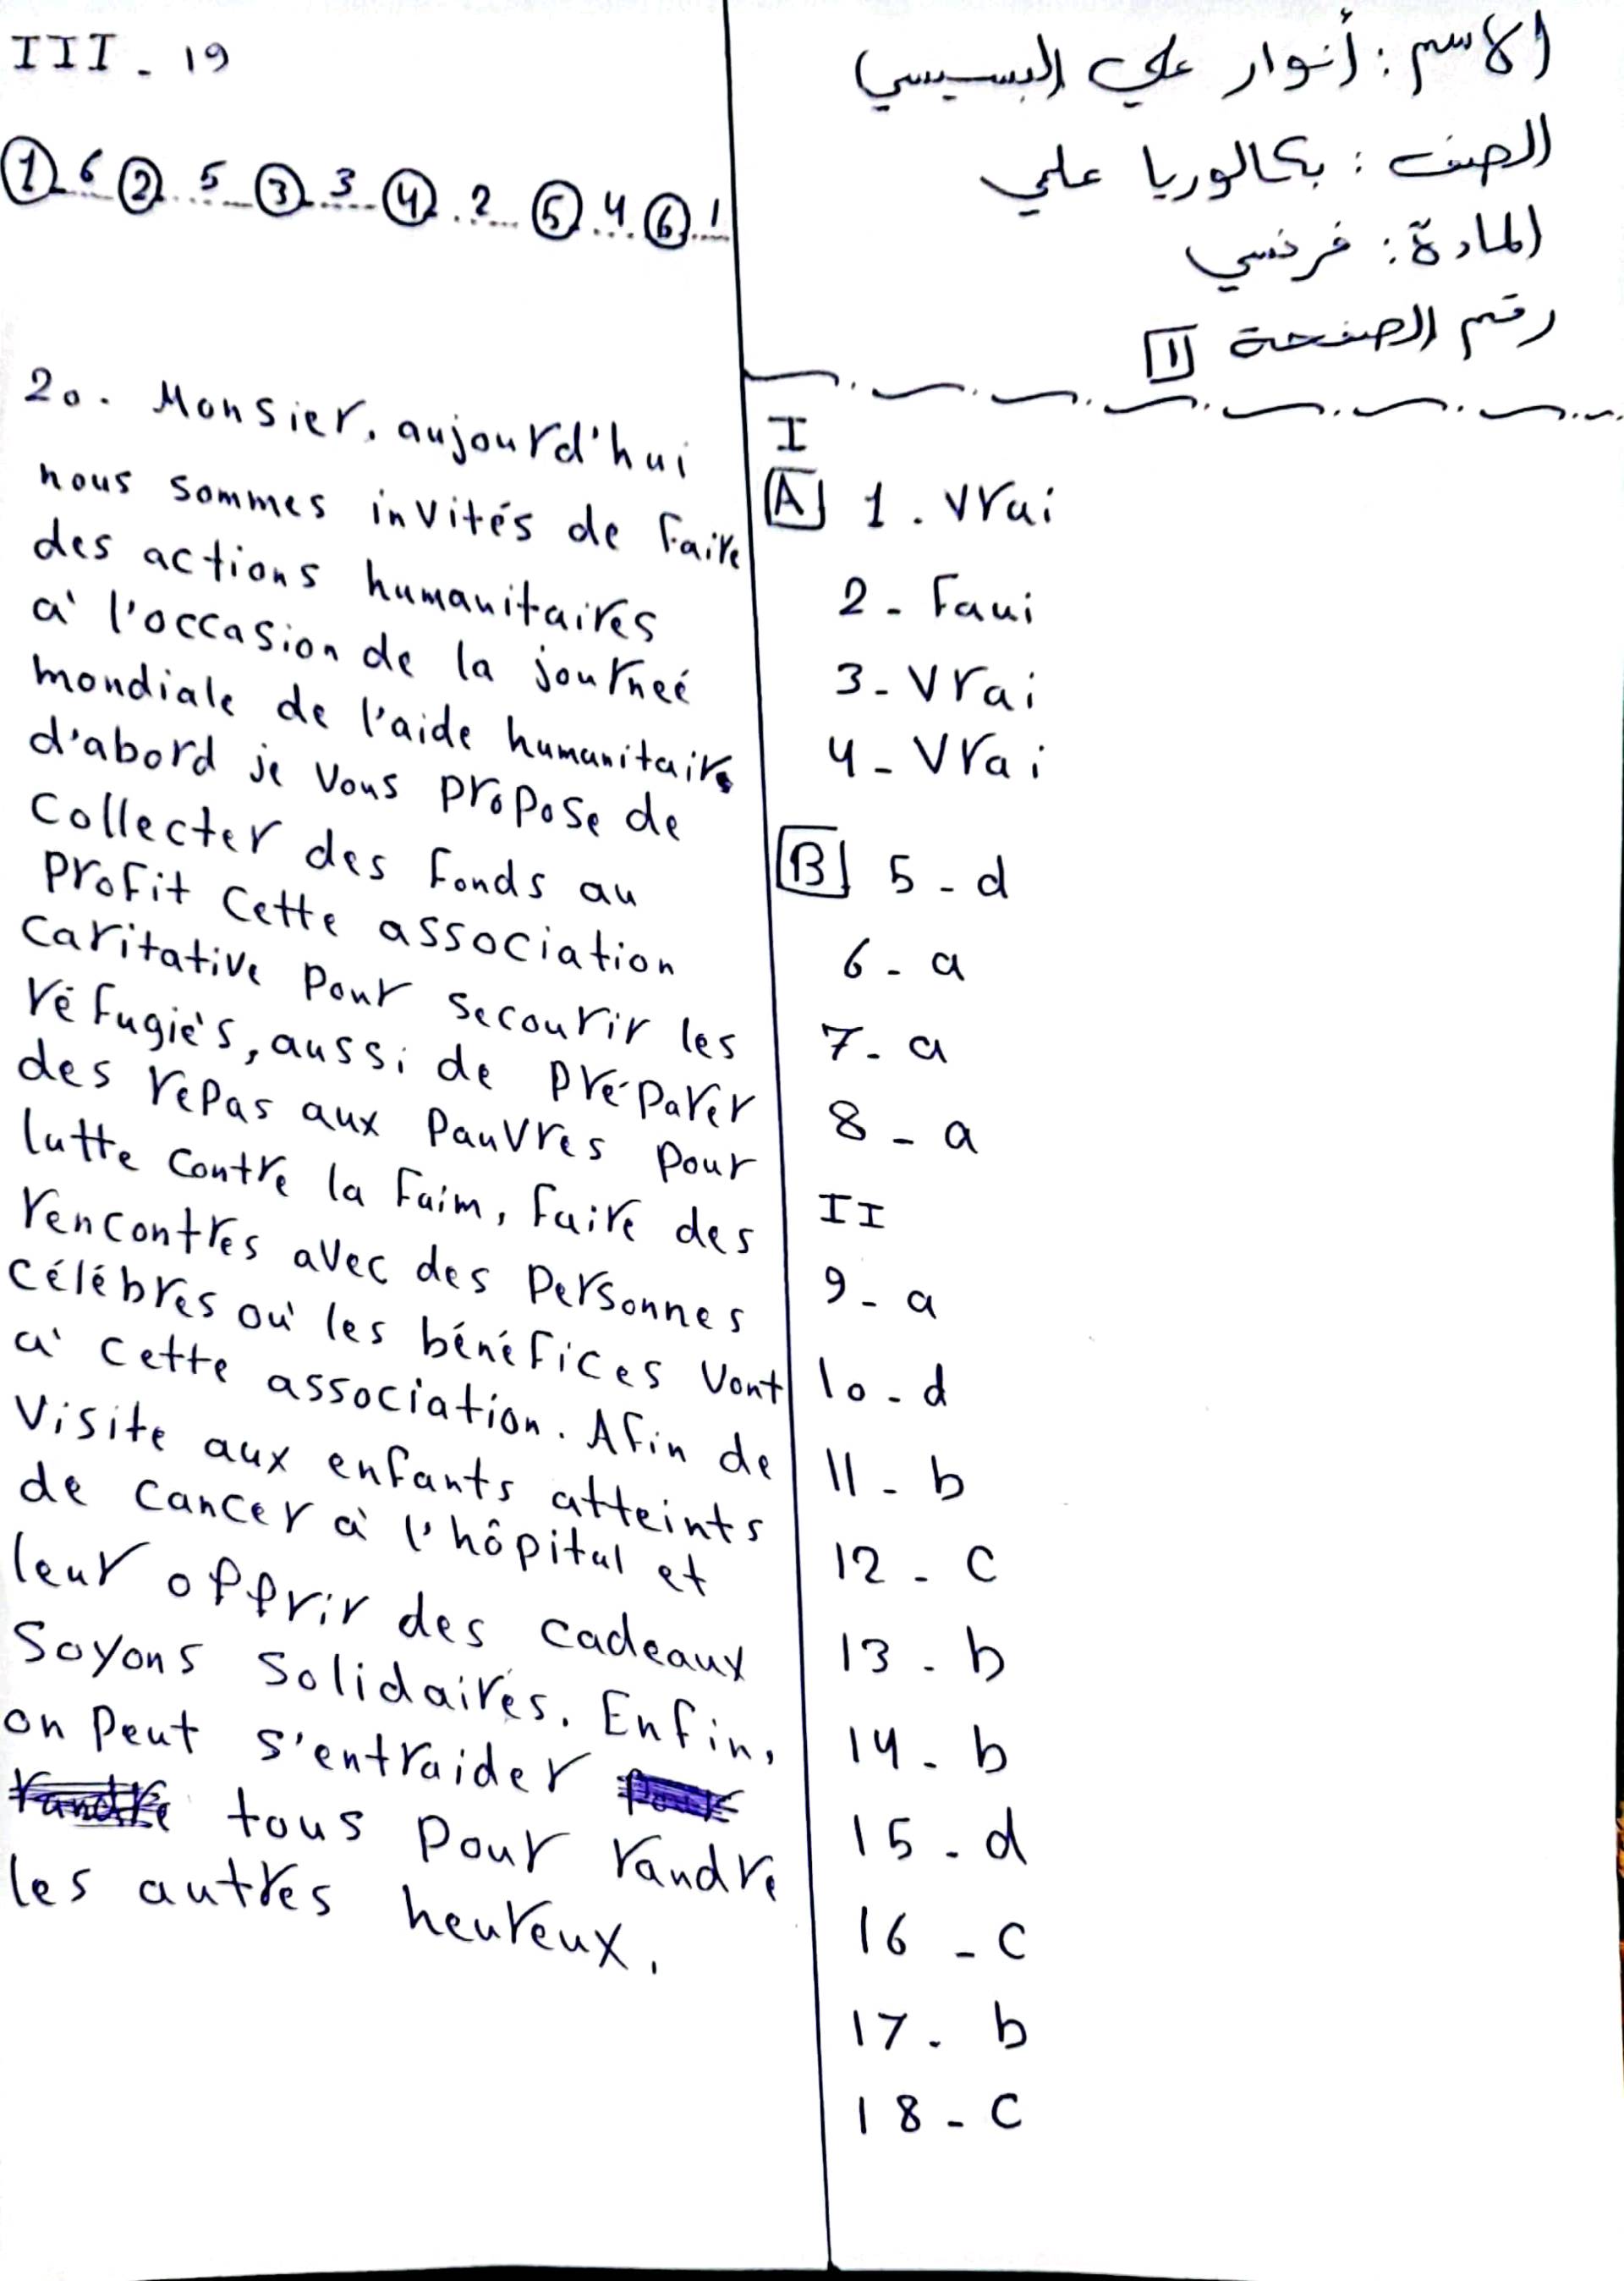 الاسم: أنوار علي البسيسي
الصف: بكالوريا علمي
المادة: فرنسي
رقم الصفحة 1
I
A 1. Vrai
2- Faui
3- Vrai
4- Vrai
B 5-d
6-a
7-a
8-a
II
9-a
10-d
11-b
12-c
13-b
14-b
15-d
16-c
17-b
18-c
III-19
1 6 2 5 3 3 4 2 5 4 6 1
20. Monsier, aujourd'hui
nous sommes invités de Faire
des actions humanitaires
à l'occasion de la journeé
mondiale de l'aide humanitaire
d'abord je vous propose de
Collecter des fonds au
profit cette association
caritative pour secourir les
réfugiés, aussi de préparer
des repas aux pauvres pour
lutte contre la faim, faire des
rencontres avec des personnes
célébres où les bénéfices vont
à cette association. Afin de
visite aux enfants atteints
de cancer à l'hôpital et
leur offrir des cadeaux
Soyons solidaires. Enfin,
on peut s'entraider
tous pour randre
les autres heureux.